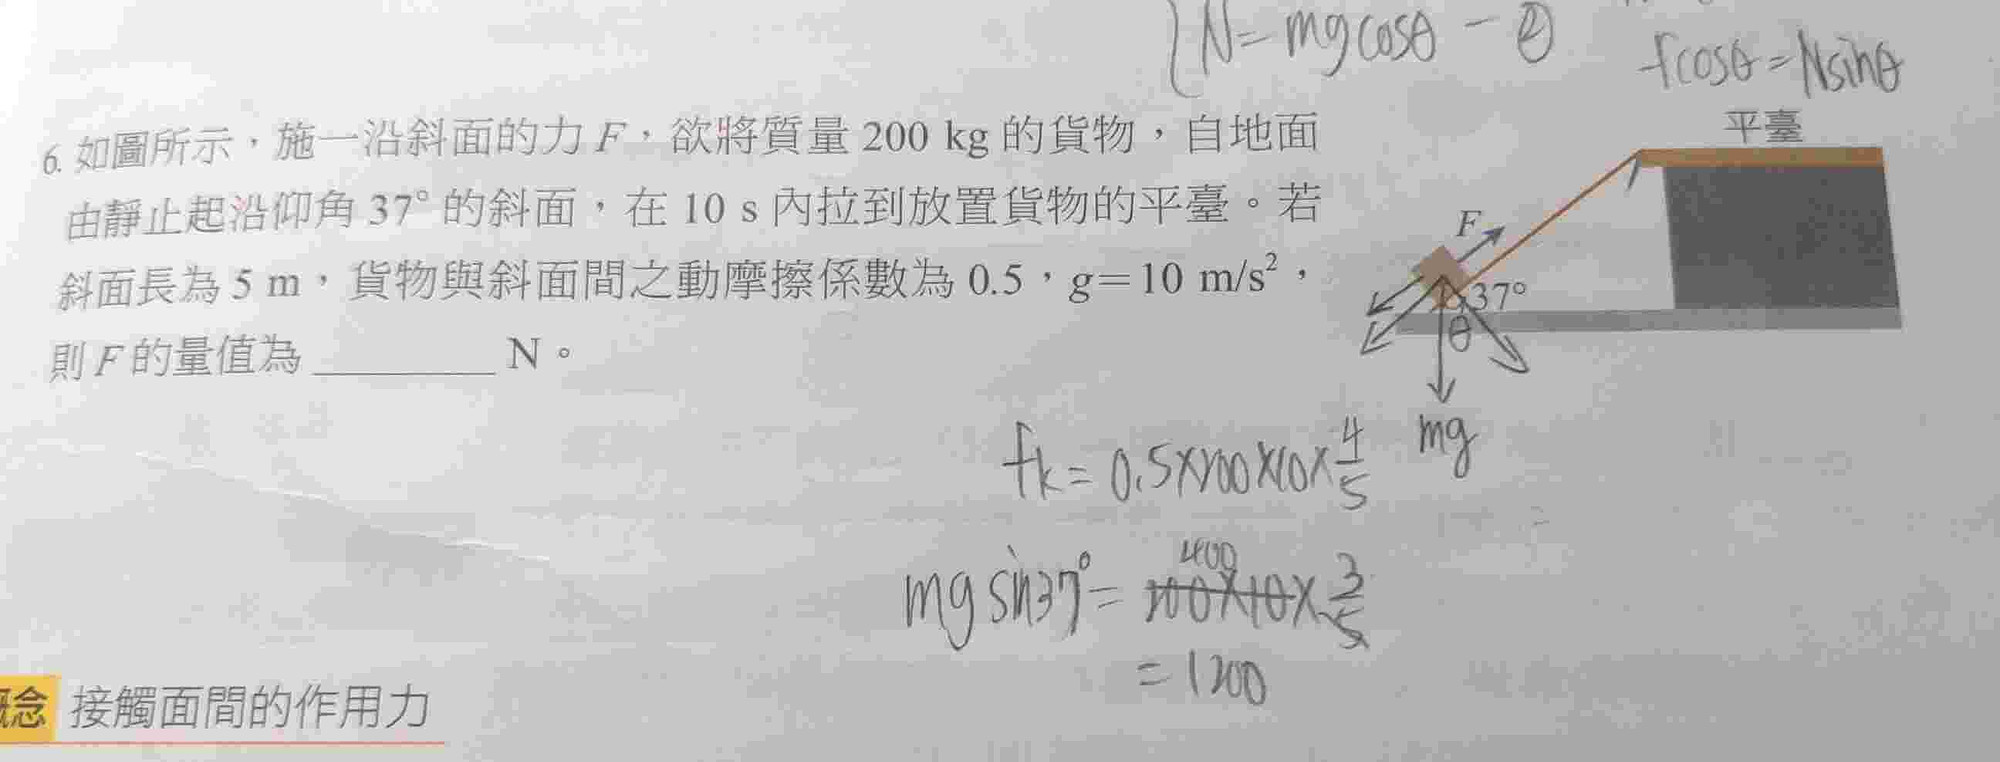 N=mgcosθ - ②
fcosθ=Nsinθ
6. 如圖所示，施一沿斜面的力 F，欲將質量 200 kg 的貨物，自地面
由靜止起沿仰角 37° 的斜面，在 10 s 內拉到放置貨物的平臺。若
斜面長為 5 m，貨物與斜面間之動摩擦係數為 0.5，g=10 m/s²，
則 F 的量值為 ________ N。
平臺
F
37°
θ
mg
fk = 0.5×200×10×4/5
400
mg sin37° = 200×10×3/5
= 1200
概念 接觸面間的作用力